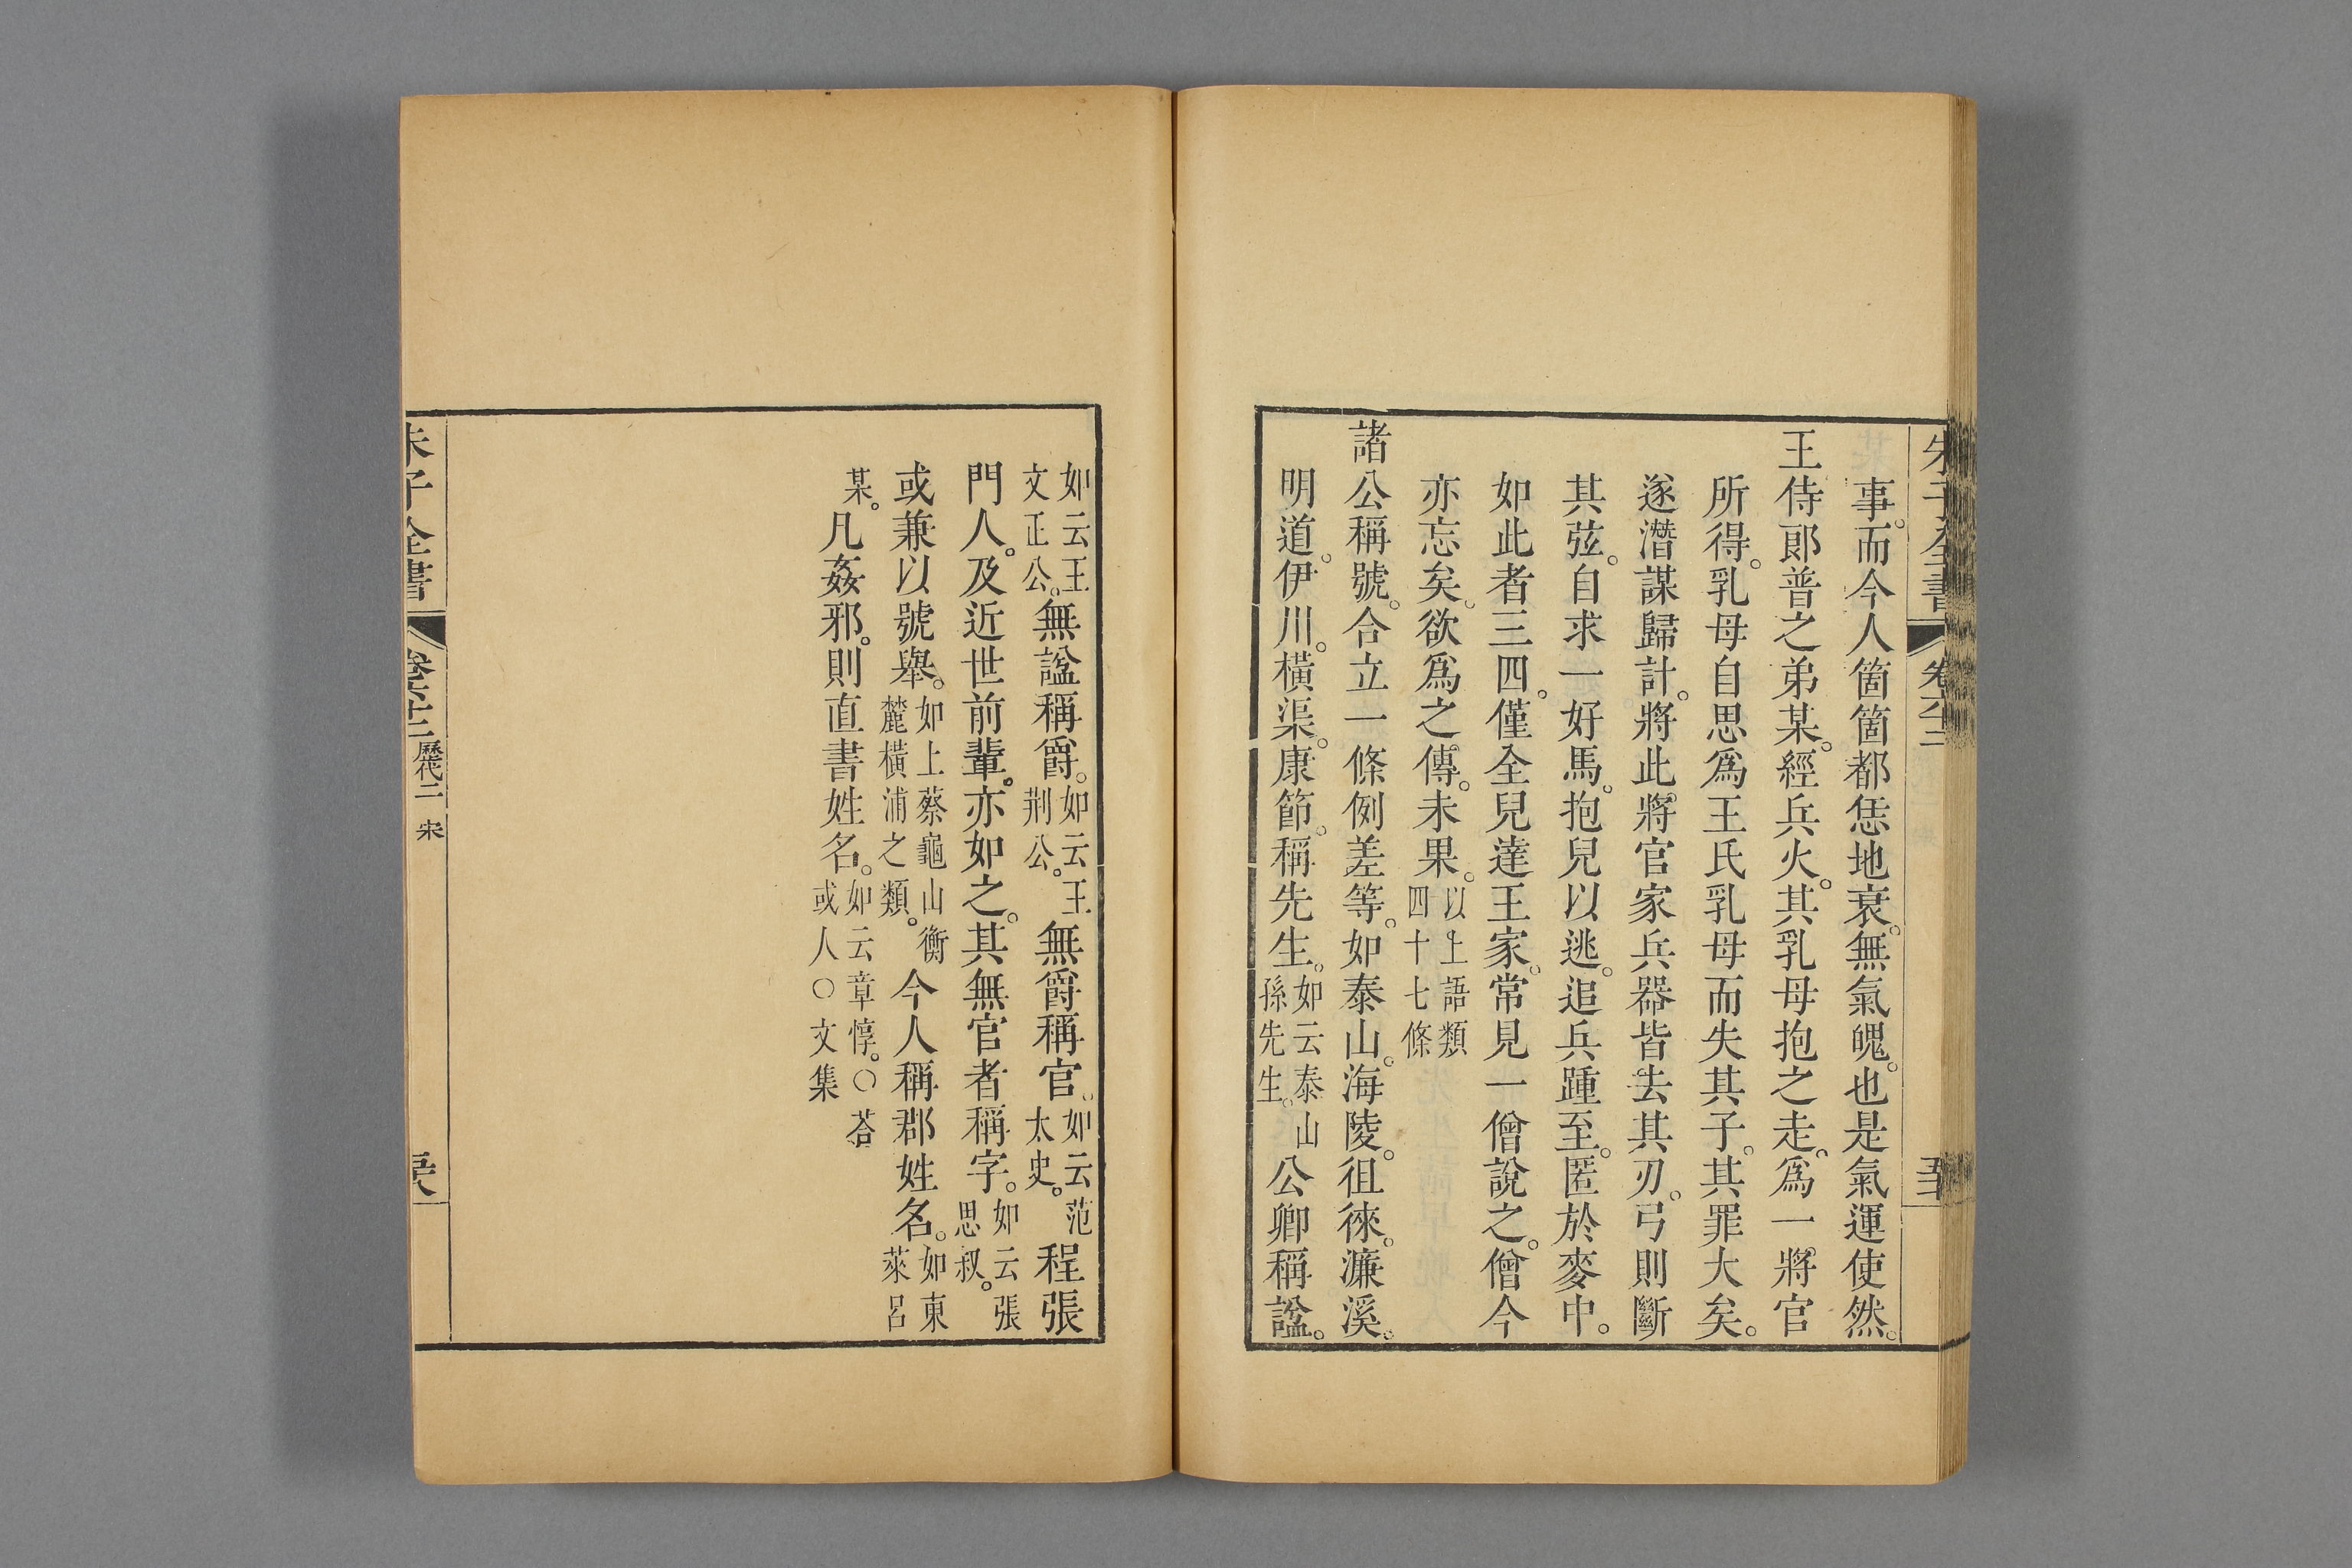 朱子全書 卷六十二
事。而今人箇箇都恁地衰。無氣魄。也是氣運使然。
王侍郎普之弟某。經兵火。其乳母抱之走。爲一將官
所得。乳母自思爲王氏乳母而失其子。其罪大矣。
遂潛謀歸計。將此將官家兵器皆去其刃。弓則斷
其弦。自求一好馬。抱兒以逃。追兵踵至。匿於麥中。
如此者三四。僅全兒達王家。常見一僧說之。僧今
亦忘矣。欲爲之傳。未果。以上語類四十七條
諸公稱號。合立一條例差等。如泰山。海陵。徂徠。濂溪。
明道。伊川。橫渠。康節。稱先生。如云泰山孫先生。公卿稱諡。
如云王文正公。無諡稱爵。如云王荆公。無爵稱官。如云范太史。程張
門人。及近世前輩。亦如之。其無官者稱字。如云張思叔。
或兼以號舉。如上蔡龜山衡麓橫浦之類。今人稱郡姓名。如東萊呂
某。凡姦邪。則直書姓名。如云章惇。○荅或人○文集
朱子全書 卷六十二 歷代二 宋